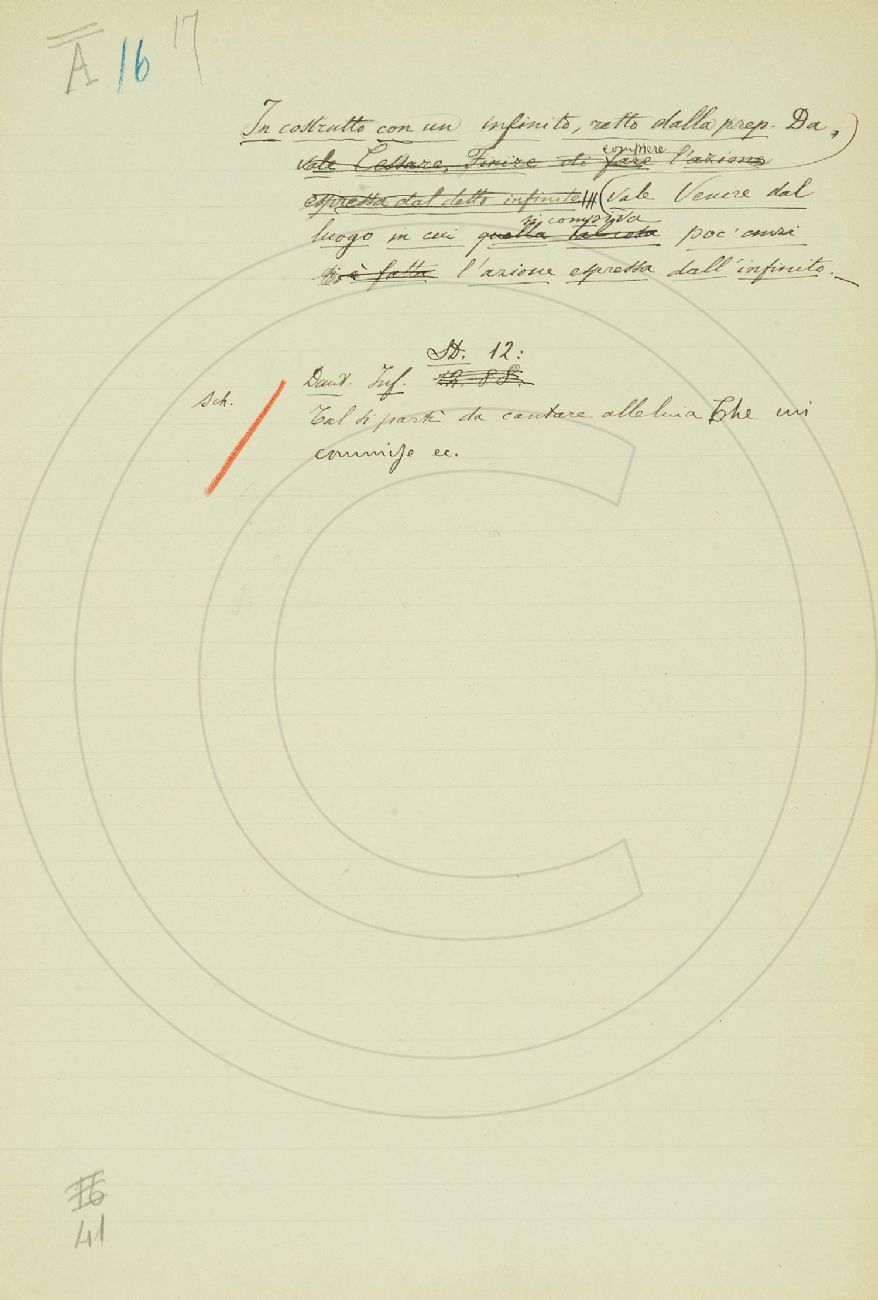 A 16 17
In costrutto con un infinito, retto dalla prep. Da,
compiere
vale Cessare, Finire di fare l'azione
espressa dal detto infinito (vale Venire dal
si compiva
luogo in cui quella tal cosa poc'anzi
si è fatta l'azione espressa dall'infinito.
12:
Dant. Inf.
Sch.
Tal si partì da cantare alleluia Che mi
commise ec.
16
41